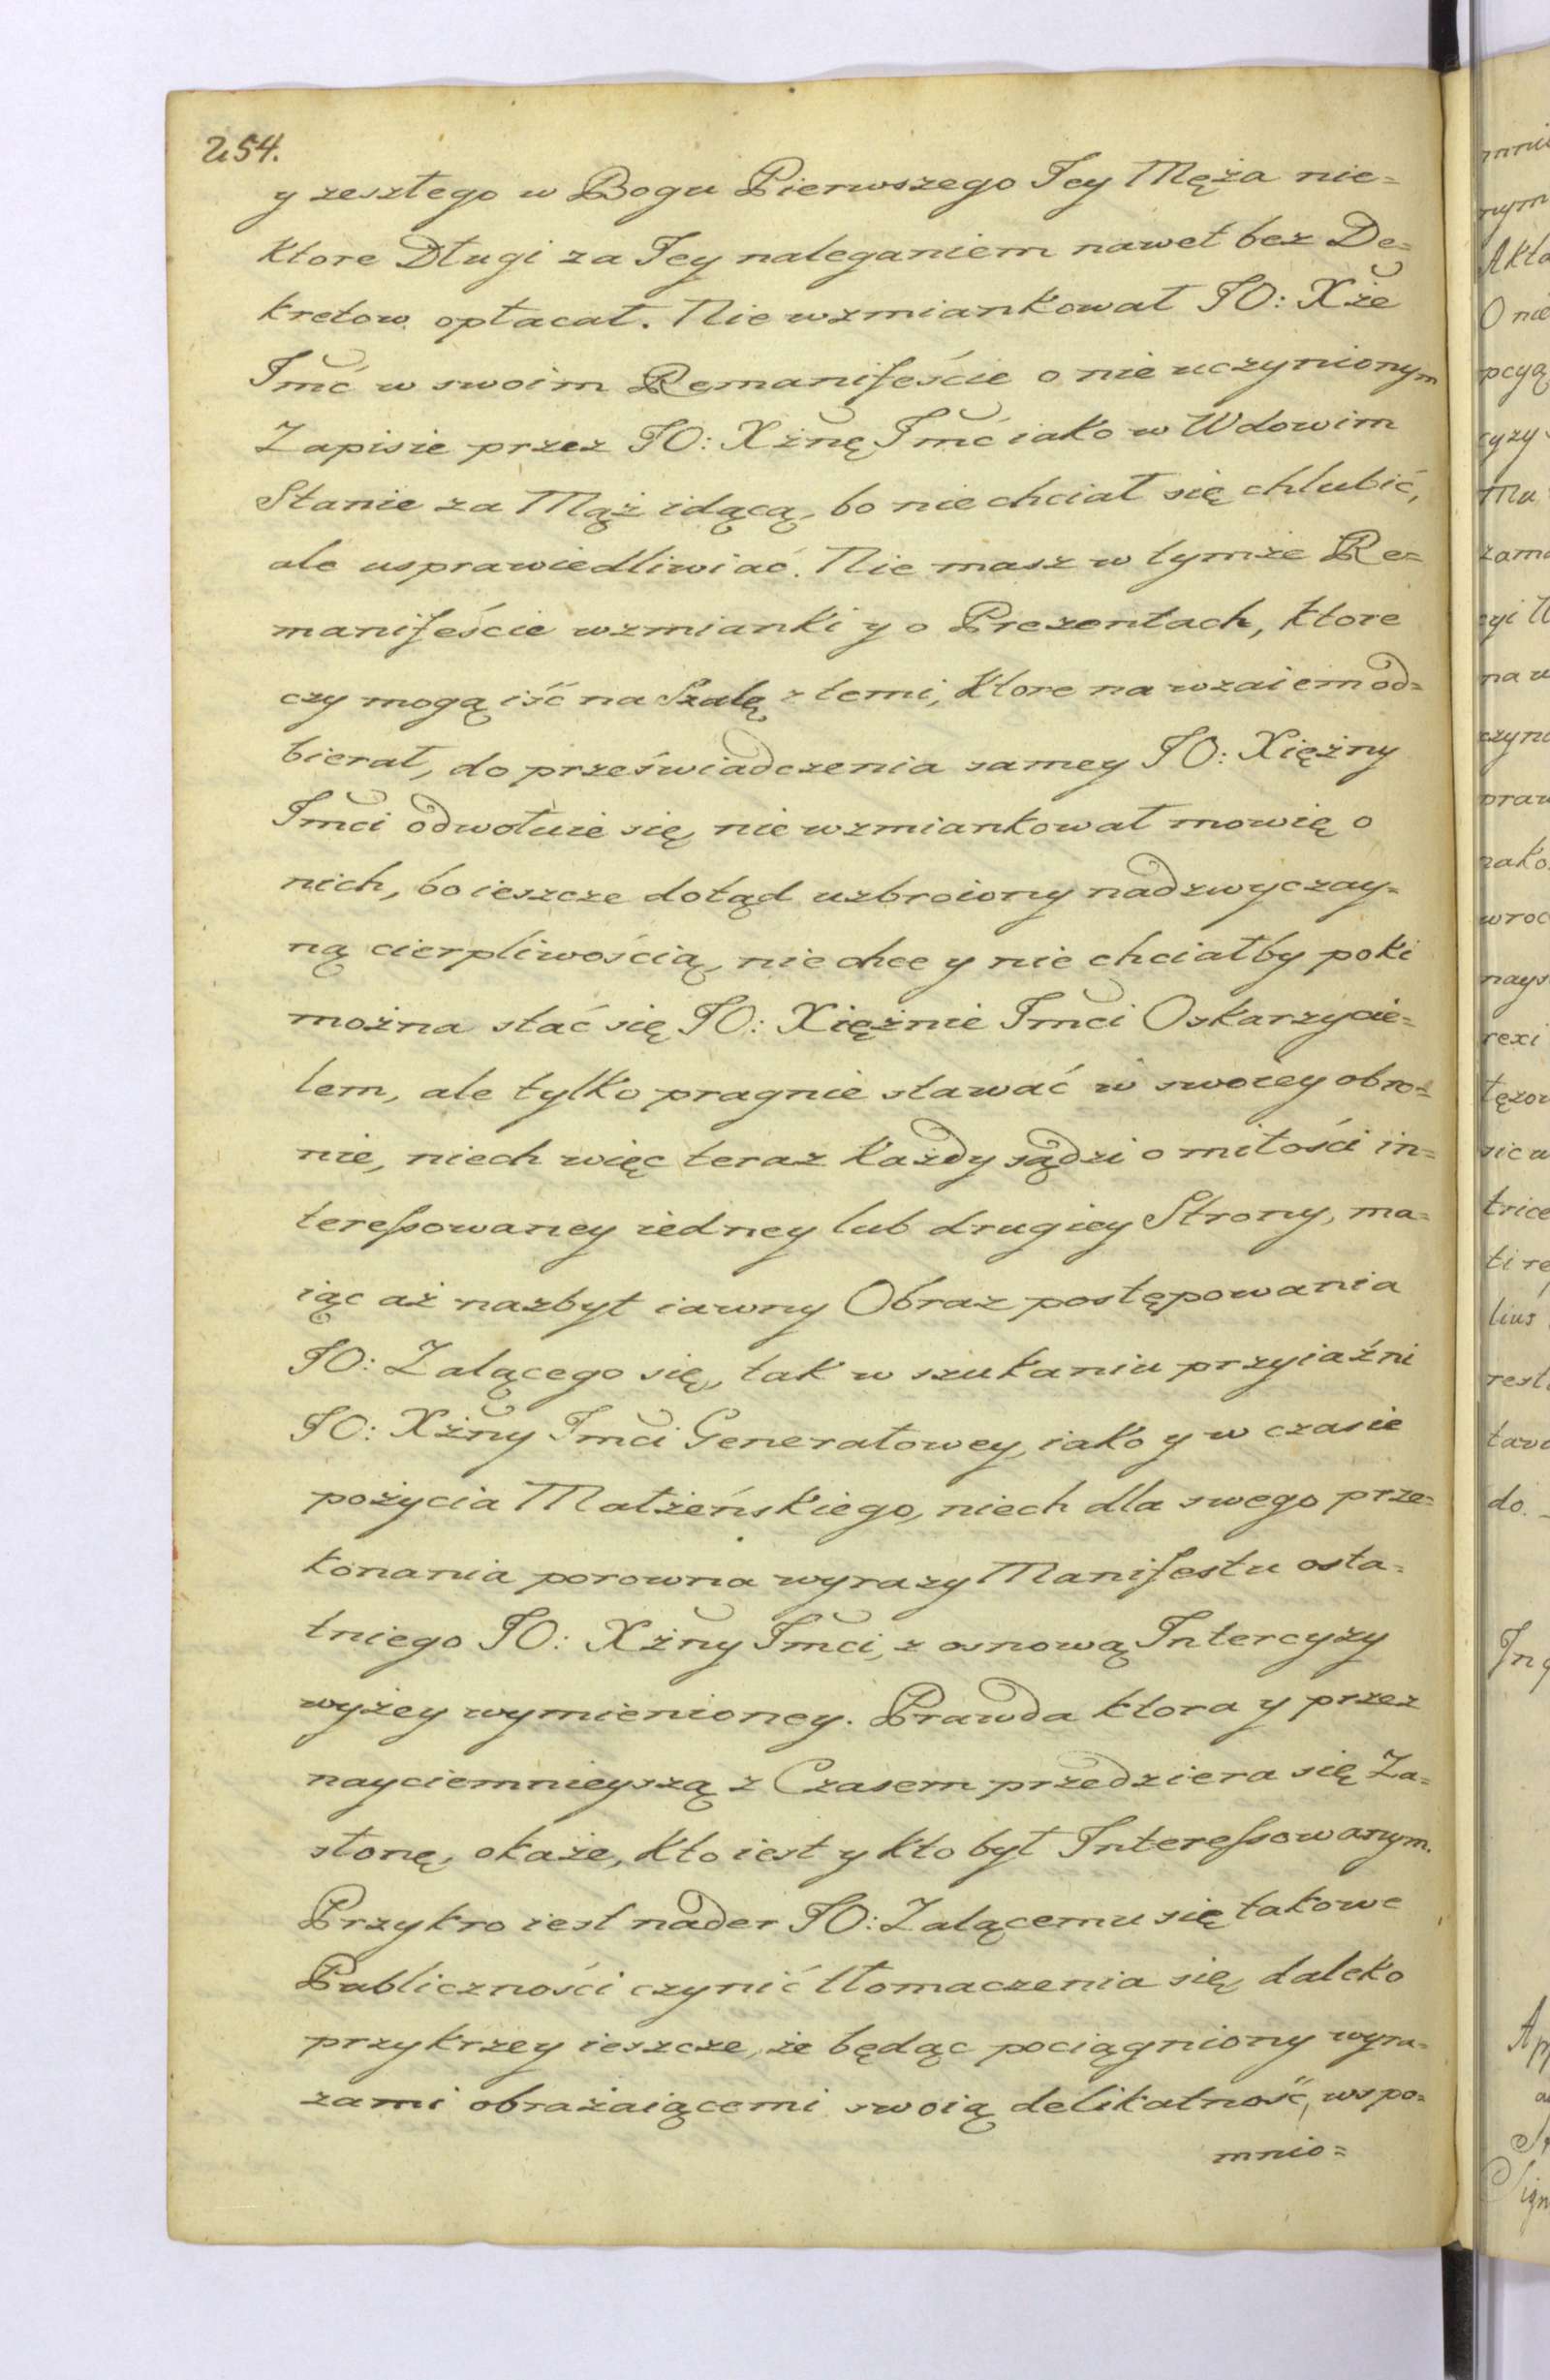 254.
y zeszłego w Bogu Pierwszego Jey Męża nie=
ktore Długi za Jey naleganiem nawet bez De=
kretow opłacał. Nie wzmiankował JO: Xże
Jmć w swoim Remanifeście o nie uczynionym
Zapisie przez JO: Xżnę Jmć iako w Wdowim
Stanie za Mąż idącą, bo nie chciał się chlubić,
ale usprawiedliwiać. Nie masz w tymże Re=
manifeście wzmianki y o Prezentach, ktore
czy mogą iść na Szalę z temi, ktore nawzaiem od=
bierał, do przeświadczenia samey JO: Xiężny
Jmci odwołuie się, nie wzmiankował mowię o
nich, bo ieszcze dotąd uzbroiony nadzwyczay=
ną cierpliwością, nie chce y nie chciałby poki
można stać się JO: Xiężnie Jmci Oskarzycie=
lem, ale tylko pragnie stawać w swoiey obro=
nie, niech więc teraz każdy sądzi o miłości in=
teressowaney iedney lub drugiey Strony, ma=
iąc aż nazbyt iawny Obraz postępowania
JO: Żalącego się, tak w szukaniu przyiaźni
JO: Xżny Jmci Generałowey, iako y w czasie
pożycia Małżeńskiego, niech dla swego prze=
konania porowna wyrazy Manifestu osta=
tniego JO: Xżny Jmci, z osnową Intercyzy
wyżey wymienioney. Prawda ktora y przez
nayciemnieyszą z Czasem przedziera się Za=
słonę, okaże, kto iest y kto był Interessowanym.
Przykro iest nader JO: Żalącemu się takowe
Publiczności czynić tłomaczenia się, daleko
przykrzey ieszcze, że będąc pociągniony wyra=
zami obrażaiącemi swoią delikatność, wspo=
mnio=